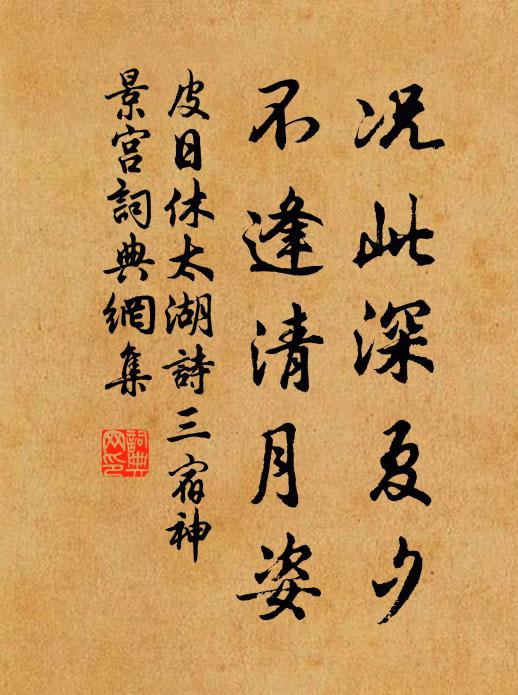 况此深夏夕
不逢清月姿
皮日休太湖詩三宿神
景宫詞典網集
詞典
网印